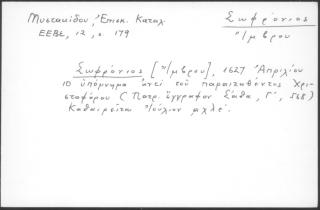 Μυστακίδου, Ἐπισκ. Καταλ.
ΕΕΒΣ, 12, σ. 179
Σωφρόνιος
Ἴμβρου
Σωφρόνιος [Ἴμβρου], 1627 Ἀπριλίου
10 ὑπόμνημα ἀντὶ τοῦ παραιτηθέντος Χρι-
στοφόρου (Πατρ. ἔγγραφον Σάθα, Γ', 568)
Καθαιρεῖται Ἰούλιον αχλε'.